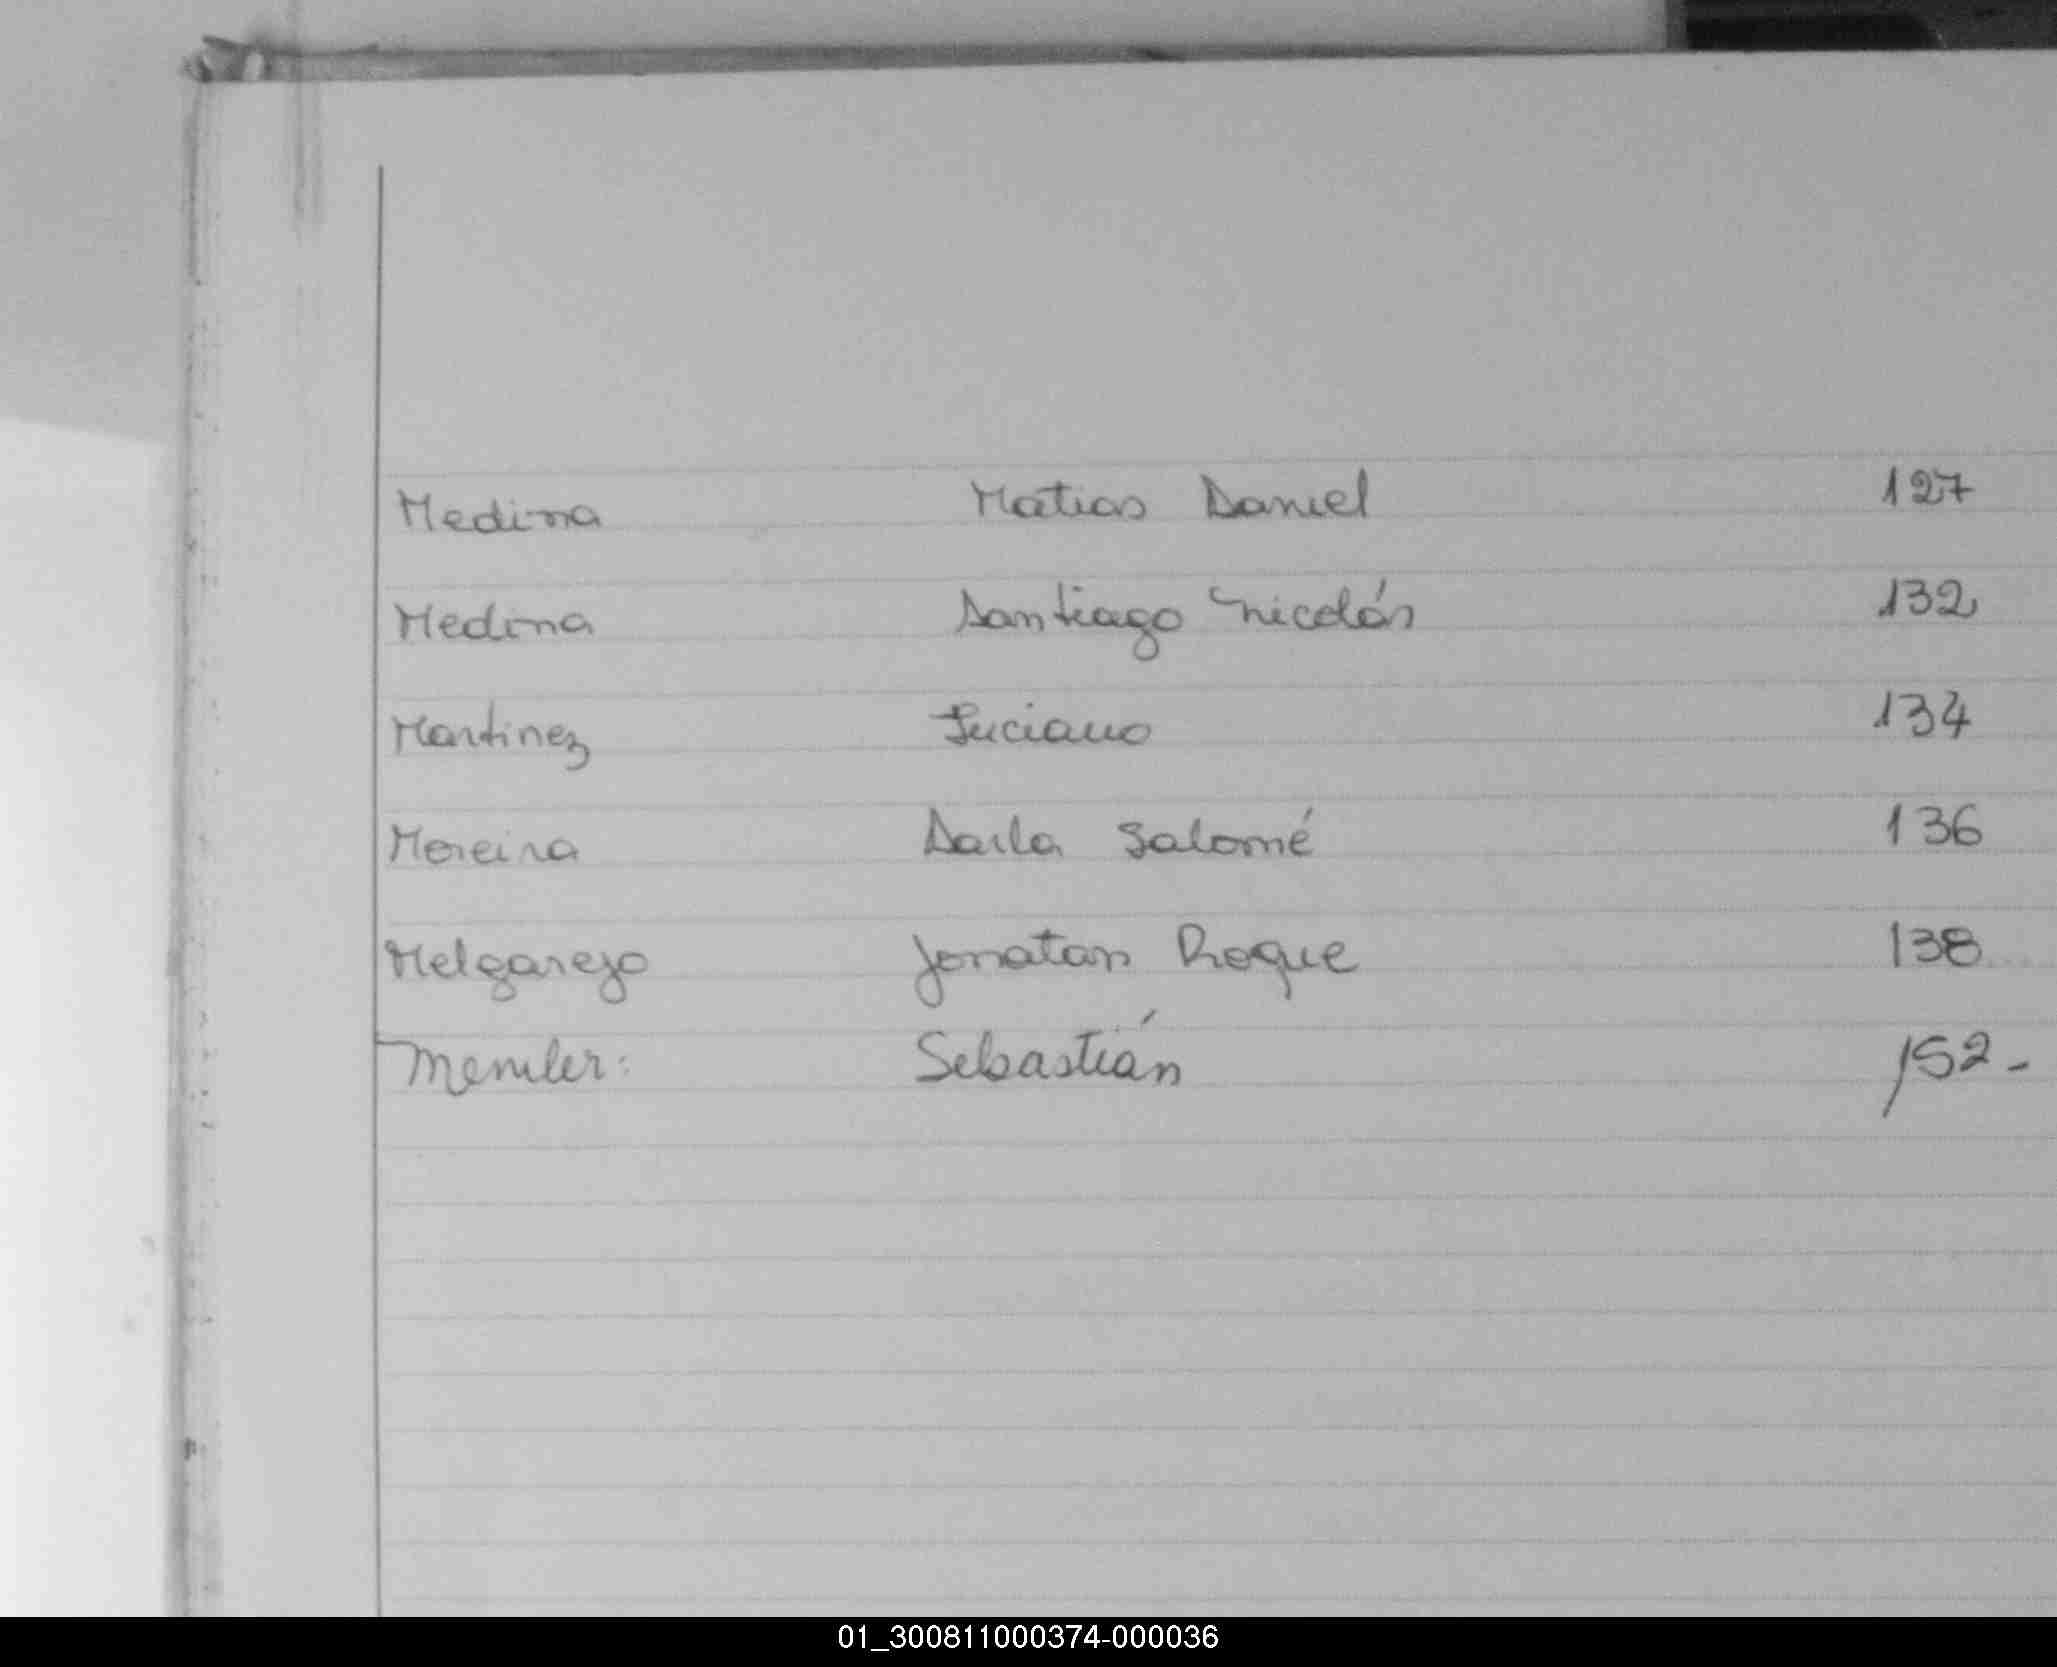 Medina Matias Daniel 127
Medina Santiago Nicolás 132
Martinez Luciano 134
Moreira Daila Salomé 136
Melgarejo Jonatan Roque 138
Sebastián 152-
01_300811000374-000036